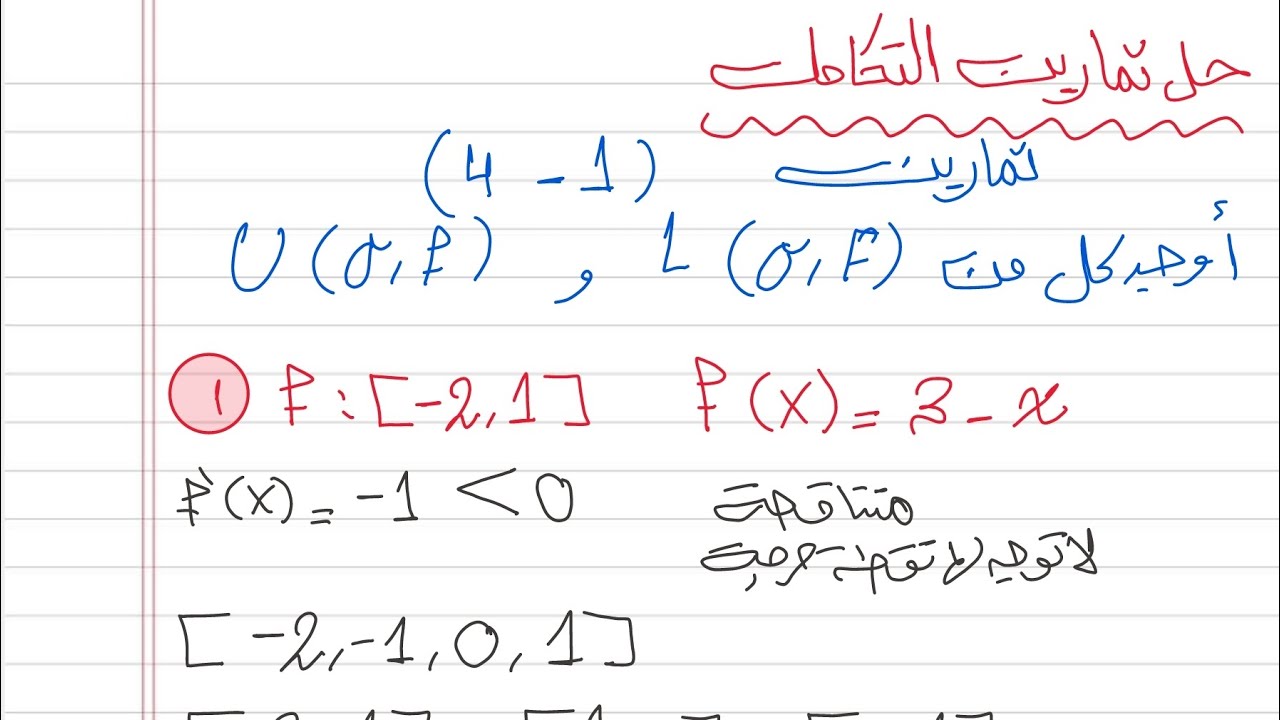 حل تمارين التكامل
تمارين (4 - 1)
أوجد كل من L (σ, F) و U (σ, f)
1 f : [-2, 1] f (x) = 3 - x
f'(x) = -1 < 0 متناقصة
لا توجد نقطة حرجة
[-2, -1, 0, 1]